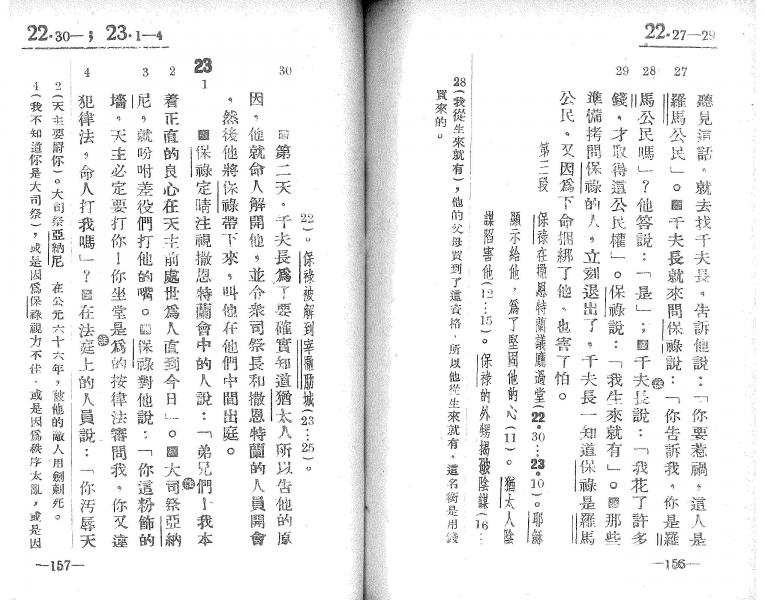 22·27—29
27
28
29
聽見這話，就去找千夫長，告訴他說：「你要惹禍，這人是
羅馬公民」。千夫長就來問保祿說：「你告訴我，你是羅
馬公民嗎」？他答說：「是」；千夫長說：「我花了許多
錢，才取得這公民權」。保祿說：「我生來就有」。那些
準備拷問保祿的人，立刻退出了，千夫長一知道保祿是羅馬
公民，又因爲下命捆綁了他，也害了怕。
第三段 保祿在撒恩特蘭議應過堂(22·30…23·10)。耶穌
顯示給他，爲了堅固他的心(11)。猶太人陰
謀陷害他(12…15)。保祿的外甥揭破陰謀(16…
28(我從生來就有)，他的父母買到了這資格，所以他從生來就有，這名銜是用錢
買來的。
—156—
22·30—；23·1—4
30
23
1
2
3
4
22)。保祿被解到宰撒肋城(23…25)。
第二天，千夫長爲了要確實知道猶太人所以告他的原
因，他就命人解開他，並令衆司祭長和撒恩特蘭的人員開會
，然後他將保祿帶下來，叫他在他們中間出庭。
保祿定睛注視撒恩特蘭會中的人說：「弟兄們！我本
着正直的良心在天主前處世爲人直到今日」。大司祭亞納
尼，就吩咐差役們打他的嘴。保祿對他說：「你這粉飾的
墻，天主必定要打你！你坐堂是爲的按律法審問我，你又違
犯律法，命人打我嗎」？在法庭上的人員說：「你污辱天
2(天主要罸你)。大司祭亞納尼 在公元六十六年，被他的敵人用劍刺死。
4(我不知道你是大司祭)，或是因爲保祿視力不佳，或是因爲秩序太亂，或是因
—157—